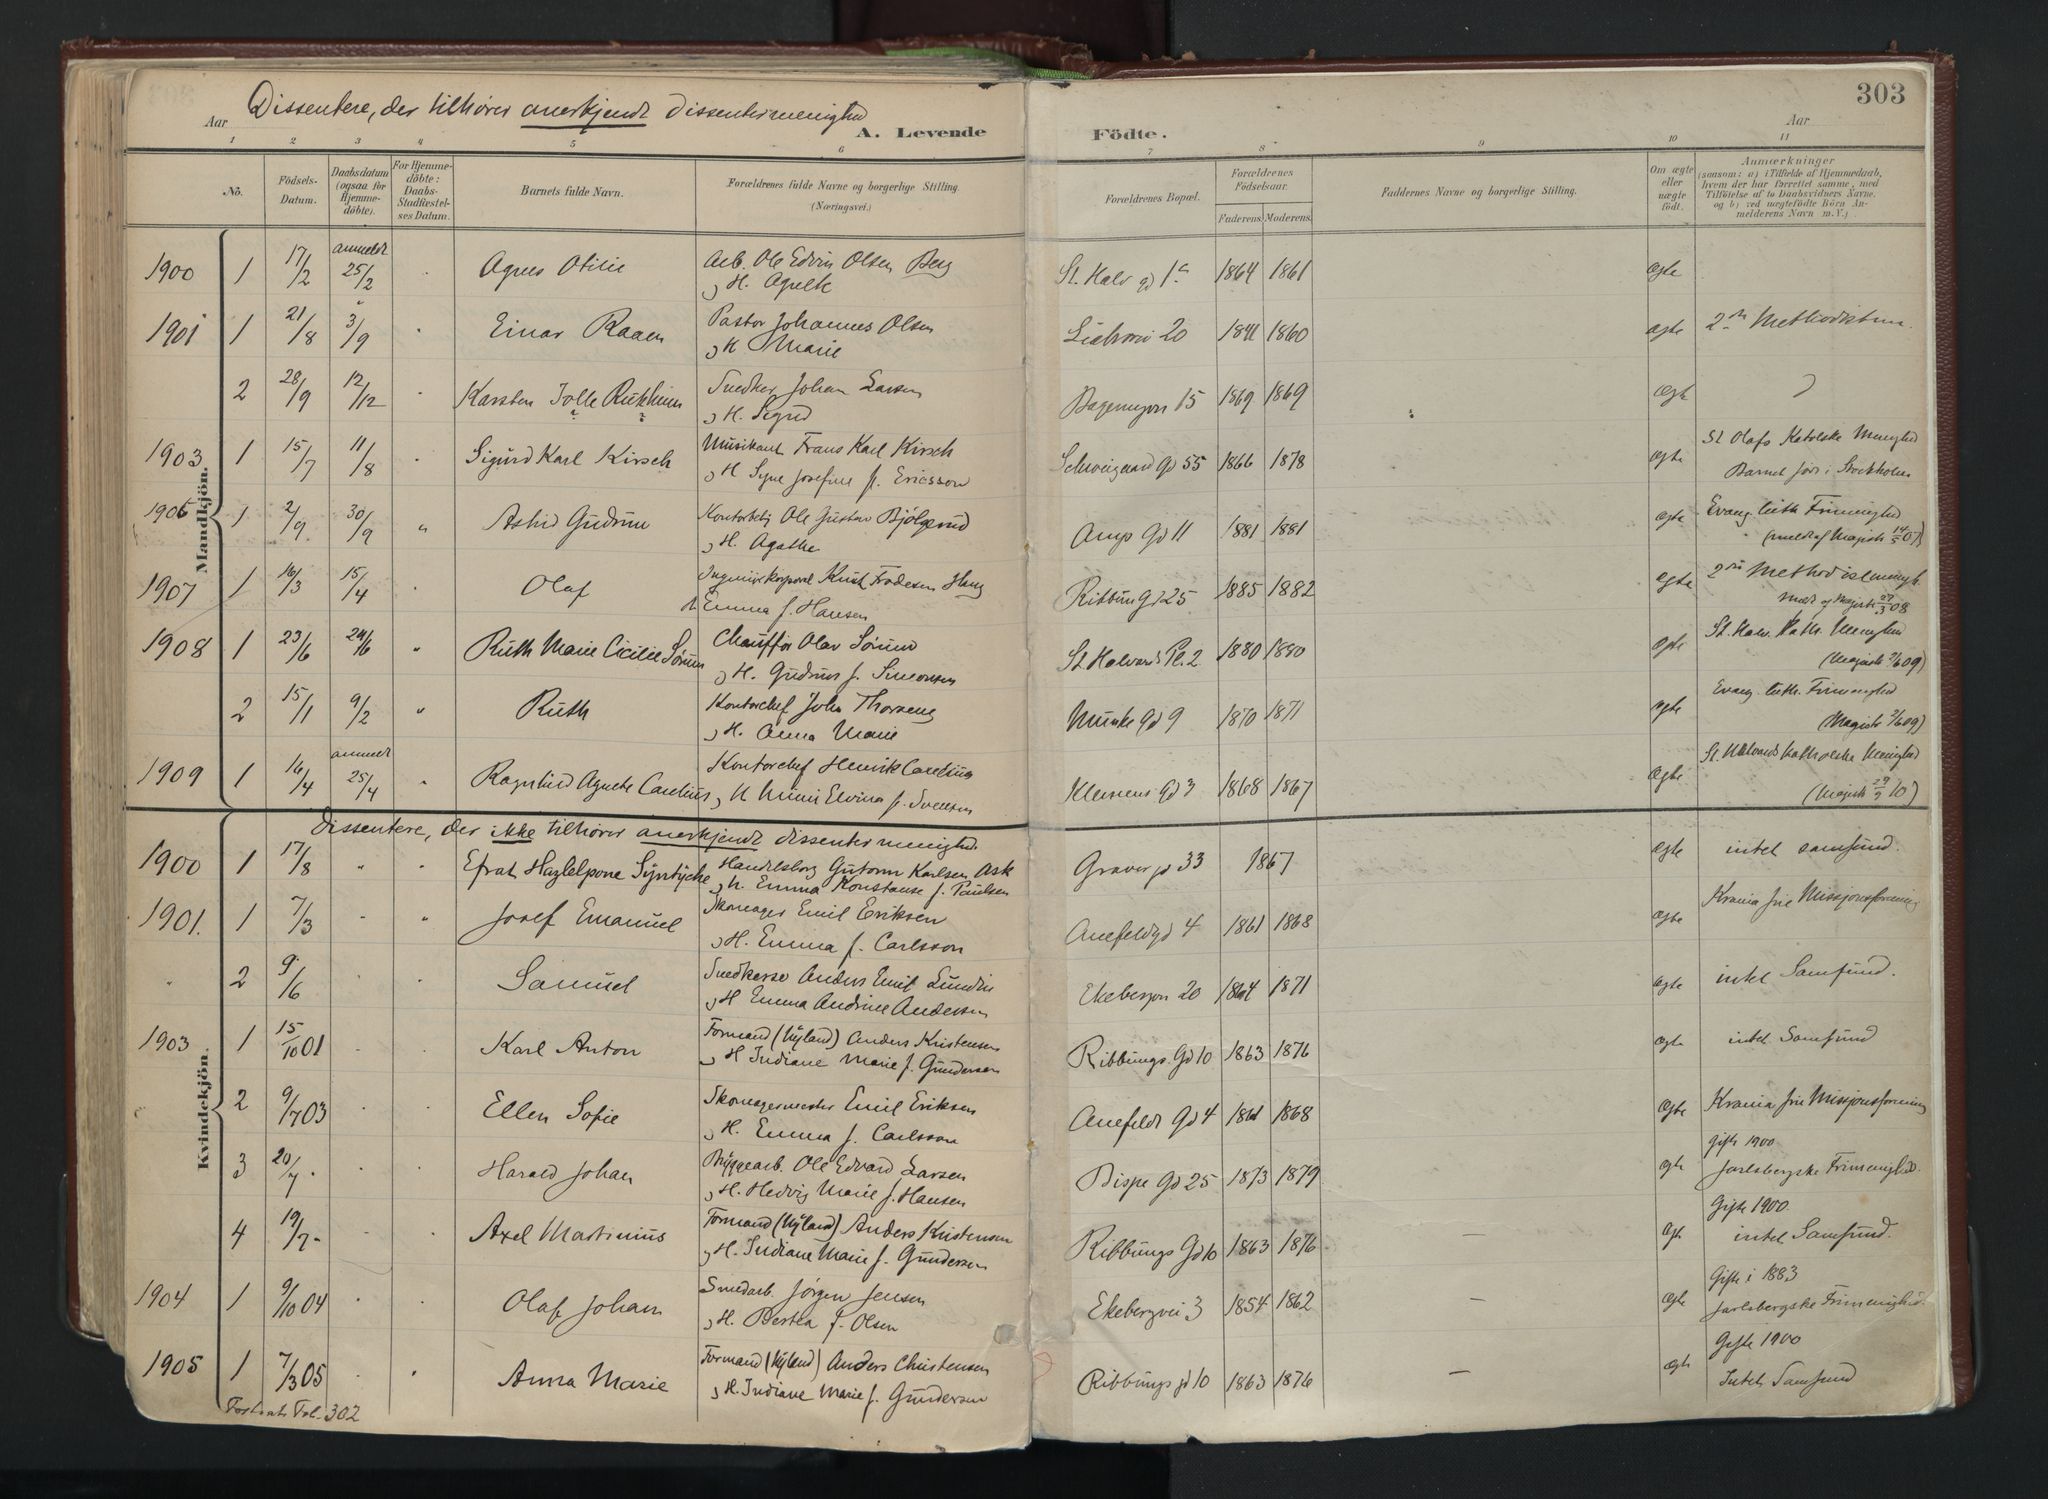 303
Dissentere, der tilhører anerkjendt dissentermenighed
Aar
A. Levende
Födte.
Aar
1 2 3 4 5 6 7 8 9 10 11
No.
Födsels-Datum.
Daabsdatum (ogsaa for Hjemme-döbte).
For Hjemme-döbte: Daabs-Stadfæstel-ses Datum.
Barnets fulde Navn.
Forældrenes fulde Navne og borgerlige Stilling. (Næringsvei.)
Forældrenes Bopæl.
Forældrenes Födselsaar.
Faderens. Moderens.
Faddernes Navne og borgerlige Stilling.
Om ægte eller uægte födt.
Anmærkninger
(saasom: a) i Tilfælde af Hjemmedaab, hvem der har forrettet samme, med Tilföielse af to Daabsvidners Navne. og b) ved uægtefödte Börn An-melderens Navn m. V.)
Mandkjön.
1900 1 17/2 anmeldt 25/2 " Agnes Otilie Arb. Ole Edvin Olsen Berg St. Halv gd 1a 1864 1861 ægte
, H.
1901 1 21/8 3/9 " Einar Raaen Pastor Johannes Olsen 20 1841 1860 ægte 2den
, H Marie
2 28/9 12/12 " Karsten Snedker Johan Larsen 15 1869 1869 ægte
, H. Sigrid
1903 1 15/7 11/8 " Sigurd Karl Kirsch Musikant Frans Karl Kirsch Schweigaard Gd 55 1866 1878 ægte St Olafs Katolske Menighed
, H Signe Josefine f. Ericsson Barnet før i Stockholm
1906 1 2/9 30/9 " Astrid Gudrun Kontorbetj Ole Gustav Bjølgerud Arups Gd 11 1881 1881 ægte Evang. luth Frimenighed
, H. Agathe (meldt af Magistr 14/5 07)
1907 1 16/3 15/4 " Olaf Knut 25 1885 1882 ægte 2den Methodistmenigh.
h Emma f. Hansen meldt af Magistr 27/3 08
1908 1 23/6 24/6 " Ruth Marie Cicilie Sørum Chauffør Olav Sørum St Halvards Pl. 2 1880 1880 ægte St. Halv. Kath. Menighed
, H. Gudrun f. Simonsen (Magistr 2/6 09)
2 15/11 9/2 " Ruth Kontorchef John Munke Gd 9 1870 1871 ægte Evang. luth. Frimenighed
, H. Anna Marie (Magistr 2/6 09)
1909 1 16/4 anmeldt 25/4 " Ragnhild Agnete Kontorchef Henrik Klemens Gd 3 1868 1867 ægte St. Halvards katholske Menighed
, H Mimi Elvina f. Svensen (Magistr 10)
Dissentere, der ikke tilhører anerkjendt dissentermenighed.
Kvindekjön.
1900 1 17/8 " " Efrat Hazlelpone Syntyche Handelsborg Gutorm Karlsen Ask Graver gd 33 1867 ægte intet samfund.
, h. Emma Konstanse f. Paulsen
1901. 1 7/3 " " Josef Emanuel Skomager Emil Eriksen 4 1861 1868 ægte Krania frie Missjonsforening
, H. Emma f. Carlsson
" 2 9/6 Samuel Anders Emil Lundin 20 1864 1871 ægte intet Samfund.
, H Emma Andrine Andersen
1903 1 15/10 01 Karl Anton Formand (Nyland) Anders Kristensen Ribbungs Gd 10 1863 1876 ægte intet Samfund
, H Indiane Marie f. Gundersen
2 9/7 03 Ellen Sofie Skomagermester Emil Eriksen Gd 4 1861 1868 ægte Krania frie Missjonsforening
, H. Emma f. Carlsson
3 20/7 - Harald Johan Bryggearb. Ole Edvard Larsen Bispe Gd 25 1873 1879 ægte Gifte 1900 Jarlsbergske Frimenighed.
, H. Hedvig Marie f. Hansen
4 19/7 - Axel Martinius Formand (Nyland) Anders Kristensen Ribbungs Gd 10 1863 1876 – ægt Gifte 1900. intet Samfund.
, H. Indiane Marie f. Gundersen
1904 1 9/10 04 Olaf Johan Smedarb. Jørgen Jensen Ekebergvei 3 1854 1862 – ægte Gifte i 1883 Jarlsbergske Frimenighed.
, H. Bertha f. Olsen
1905 1 7/3 05 Anna Marie Formand (Nyland) Anders Christensen Ribbungs gd 10 1863 1876 – ægt Gifte 1900 Intet Samfund
, H. Indiane Marie f. Gundersen
Fortsat Fol. 302